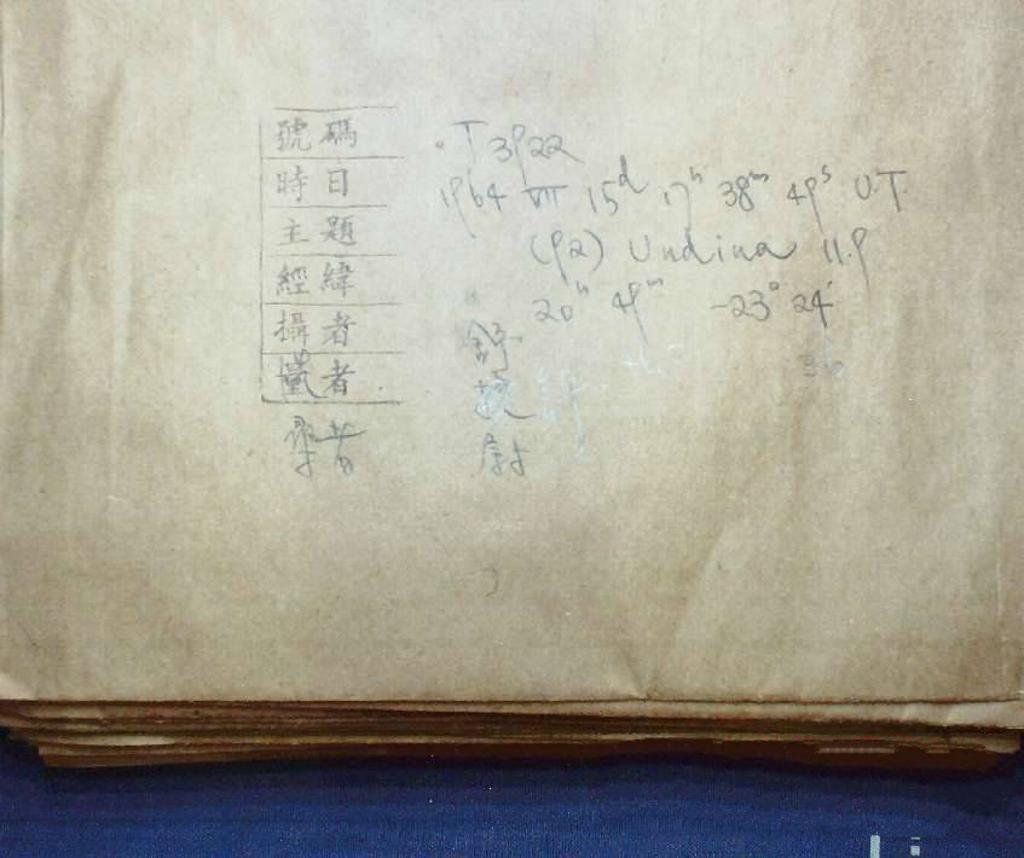 號碼 T 3922
時日 1964 VII 15d 17h 38m 49s U.T.
主題 (92) Undina 11.9
經緯 20h 49m -23° 24'
攝者 舒
者
者 尉